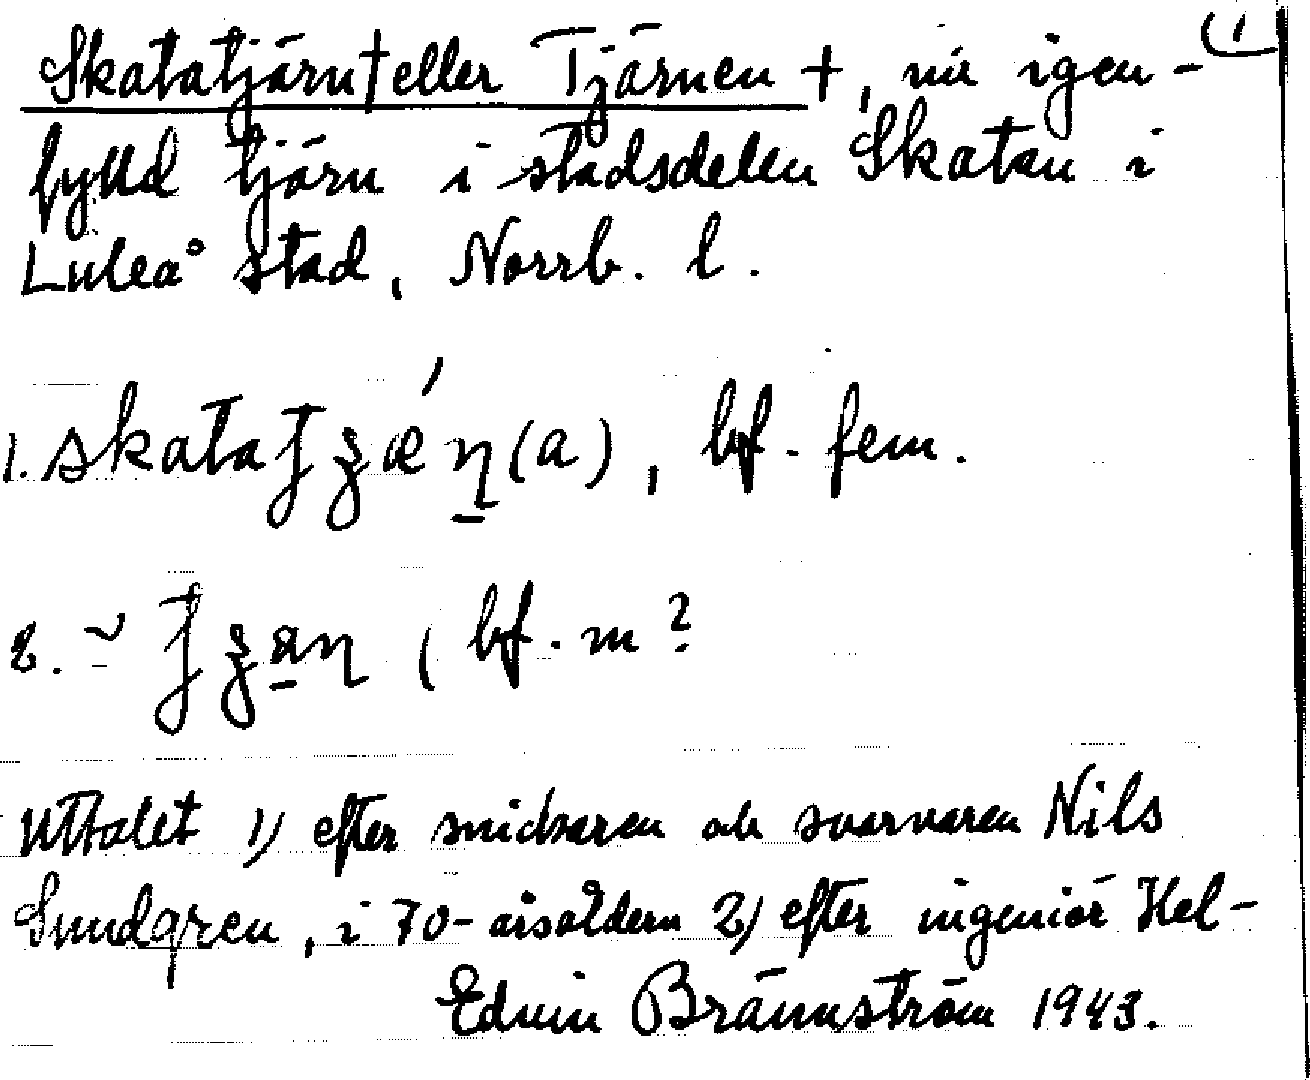 (1
Skatatjärn † eller Tjärnen †, nu igen-
fylld tjärn i stadsdelen Skatan i
Luleå stad, Norrb. l.
1. skata (a), bf. fem.
2. ~ , bf. m ?
Uttalet 1) efter snickaren och svarvaren Nils
Sundgren, i 70-årsåldern 2) efter ingeniör Hel-
Edvin Brännström 1943.